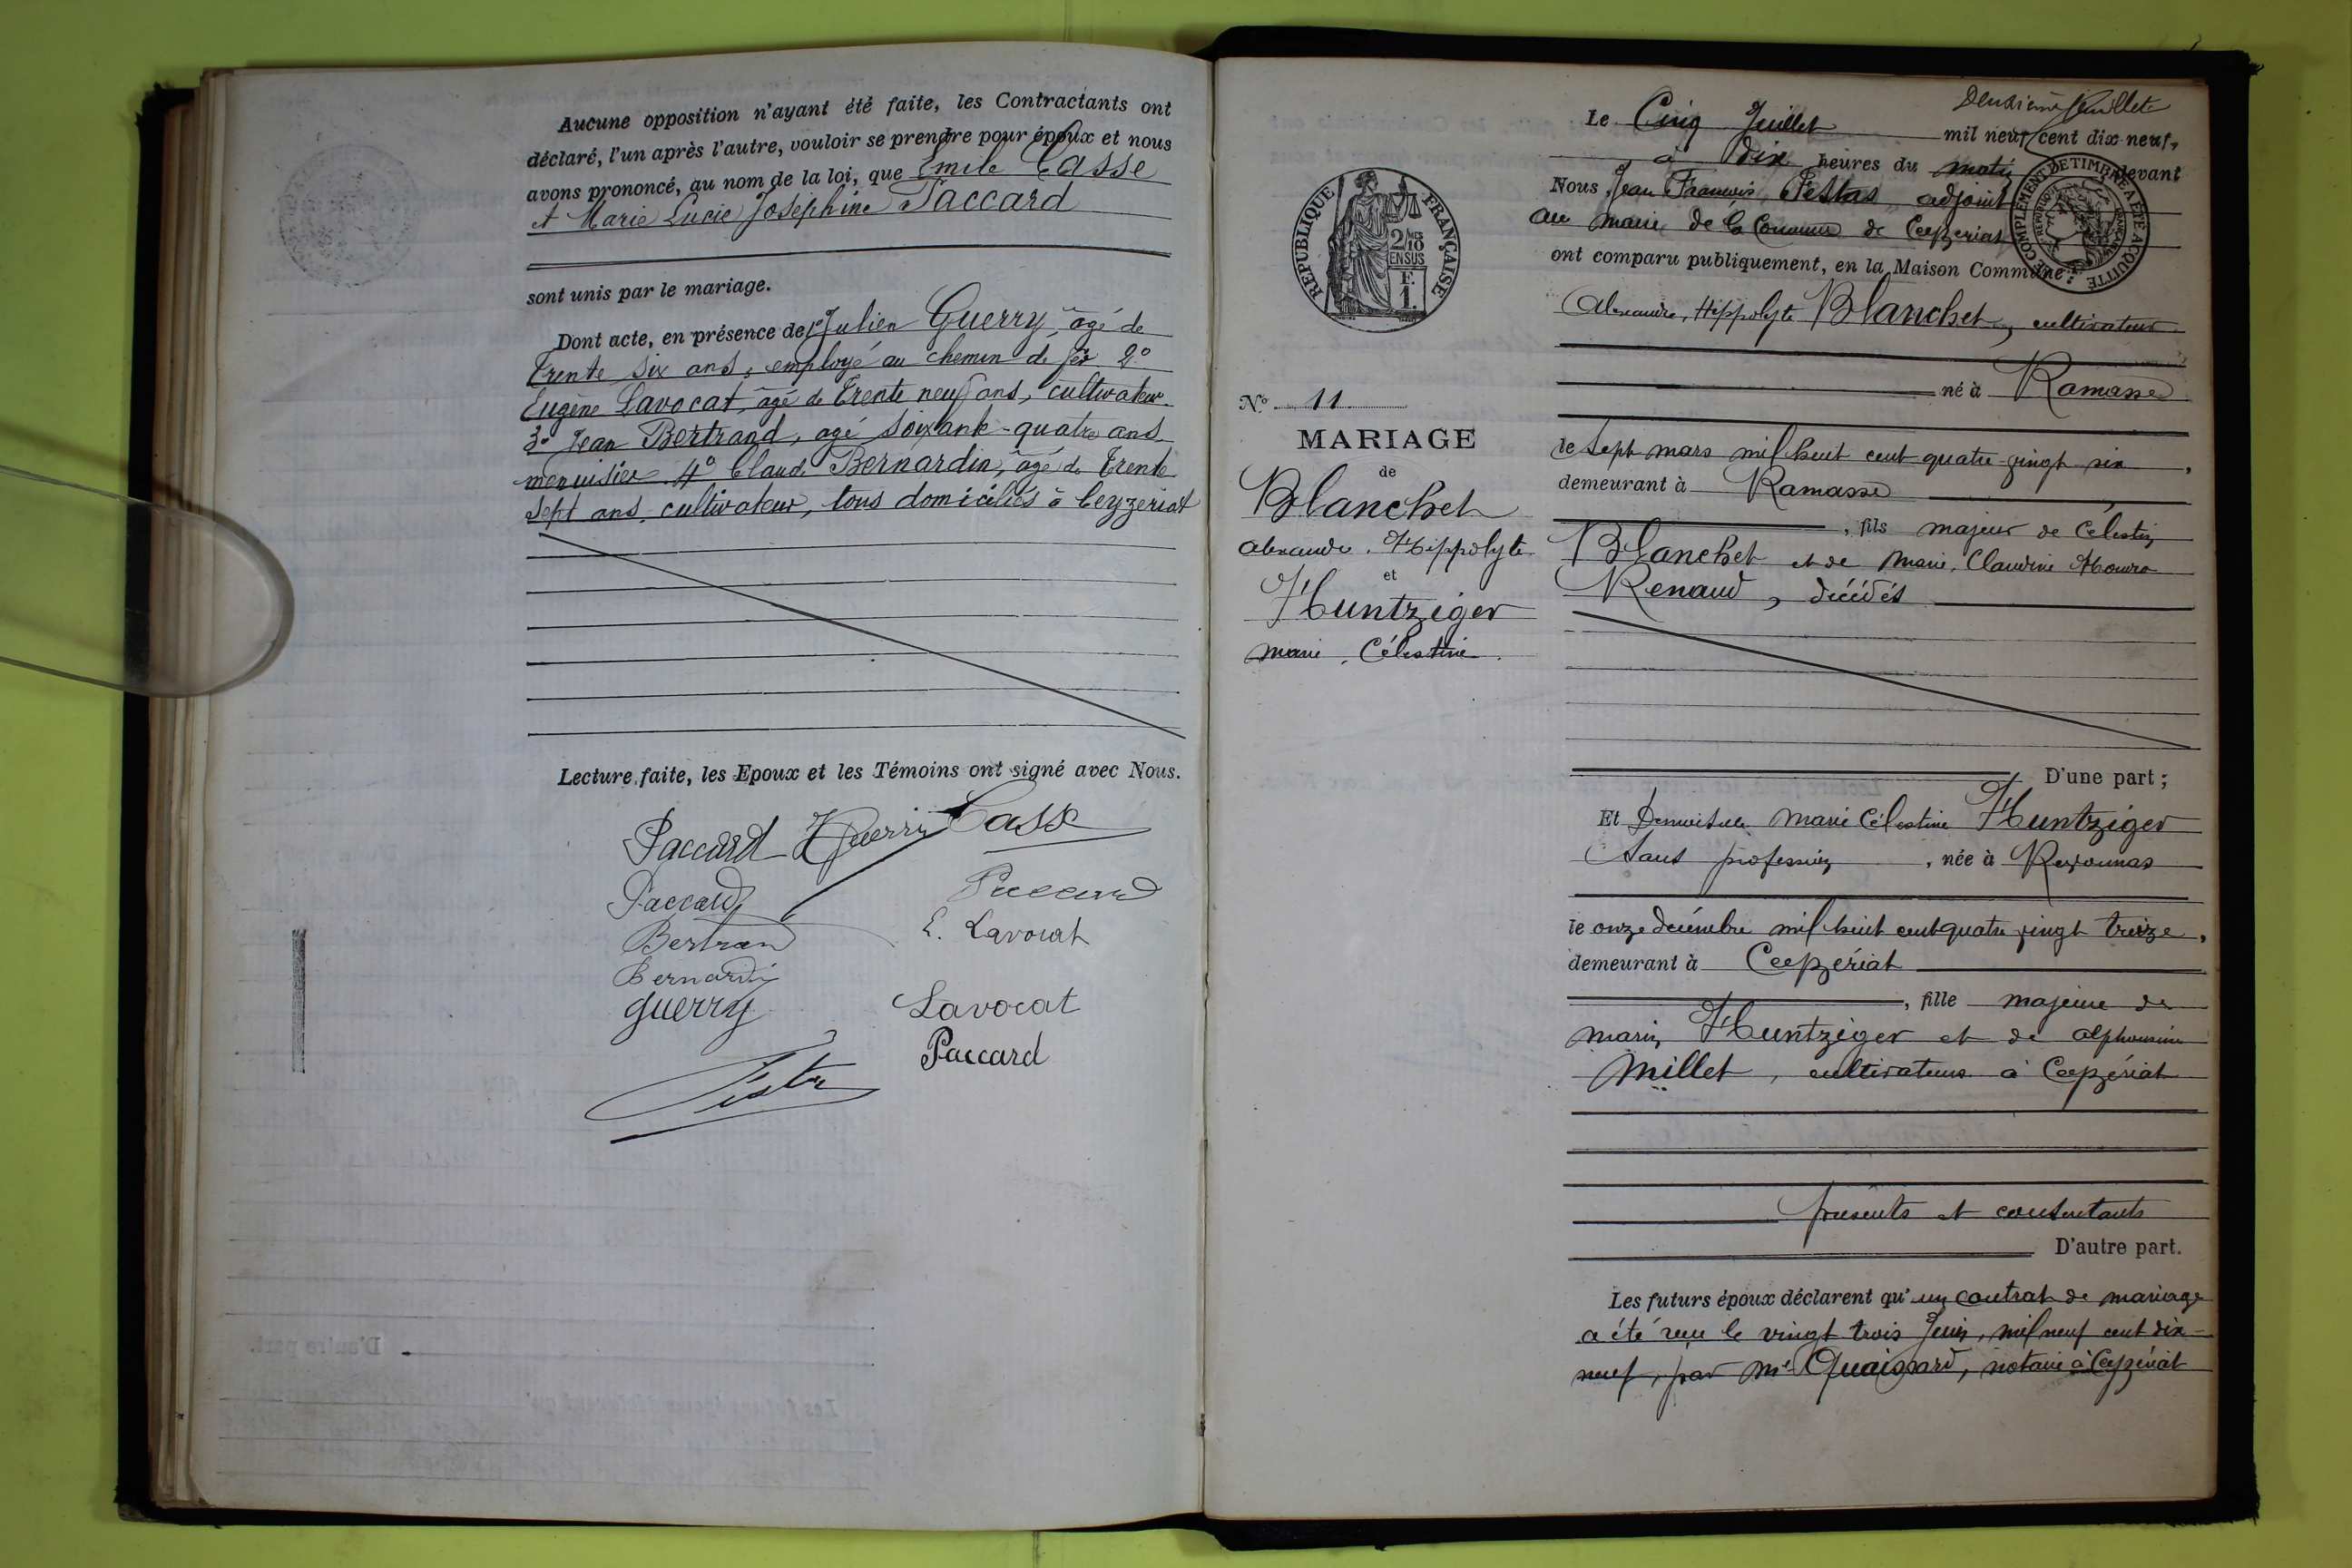 Aucune opposition n'ayant été faite, les Contractants ont
déclaré, l'un après l'autre, vouloir se prendre pour époux et nous
avons prononcé, au nom de la loi, que Emile Casse
et Marie Lucie Joséphine Paccard
sont unis par le mariage.
Dont acte, en présence de 1° Julien Guerry, âgé de
trente six ans, employé au chemin de fer 2°
Eugène Lavocat, âgé de trente neuf ans, cultivateur
3° Jean Bertrand, agé soixante-quatre ans
menuisier 4° Claude Bernardin, âgé de trente
sept ans, cultivateur, tous domiciliés à Ceyzeriat
Lecture faite, les Epoux et les Témoins ont signé avec Nous.
Paccard Guerry Casse
Paccard Paccard
Bertrand E. Lavocat
Bernardin
guerry Lavocat
Paccard
Deuxième feuillet
Le Cinq Juillet mil neuf cent dix-neuf,
à dix heures du matin devant
Nous, Jean François, Pestas, adjoint
au maire de la Commune de Ceyzeriat
ont comparu publiquement, en la Maison Commune :
COMPLÉMENT DE TIMBRE A ÉTÉ ACQUITTÉ
RÉPUBLIQUE FRANÇAISE
2/10 EN SUS
F. 1.
Alexandre, Hippolyte Blanchet, cultivateur
né à Ramasse
le sept mars mil huit cent quatre-vingt six,
demeurant à Ramasse
, fils majeur de Célestin
Blanchet et de Marie, Claudine
Renaud, décédés
No 11
MARIAGE
de
Blanchet
alexandre, Hippolyte
et
Huntziger
marie, Célestine.
D'une part ;
Et Demoiselle Marie Célestine Huntziger
Sans profession, née à Reyssouzas
le onze décembre mil huit cent quatre vingt treize,
demeurant à Ceyzériat
, fille majeure de
Marin Huntziger et de alphonsine
Millet, cultivateurs à Ceyzériat
présents et consentants
D'autre part.
Les futurs époux déclarent qu'un contrat de mariage
a été reçu le vingt trois Juin, mil neuf cent dix-
neuf, par Me Quaissard, notaire à Ceyzériat